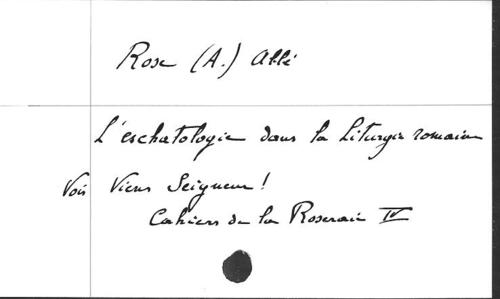 Rose (A.) Abbé
L'eschatologie dans la Liturgie romaine
Voir Viens Seigneur!
Cahiers de la Roseraie IV